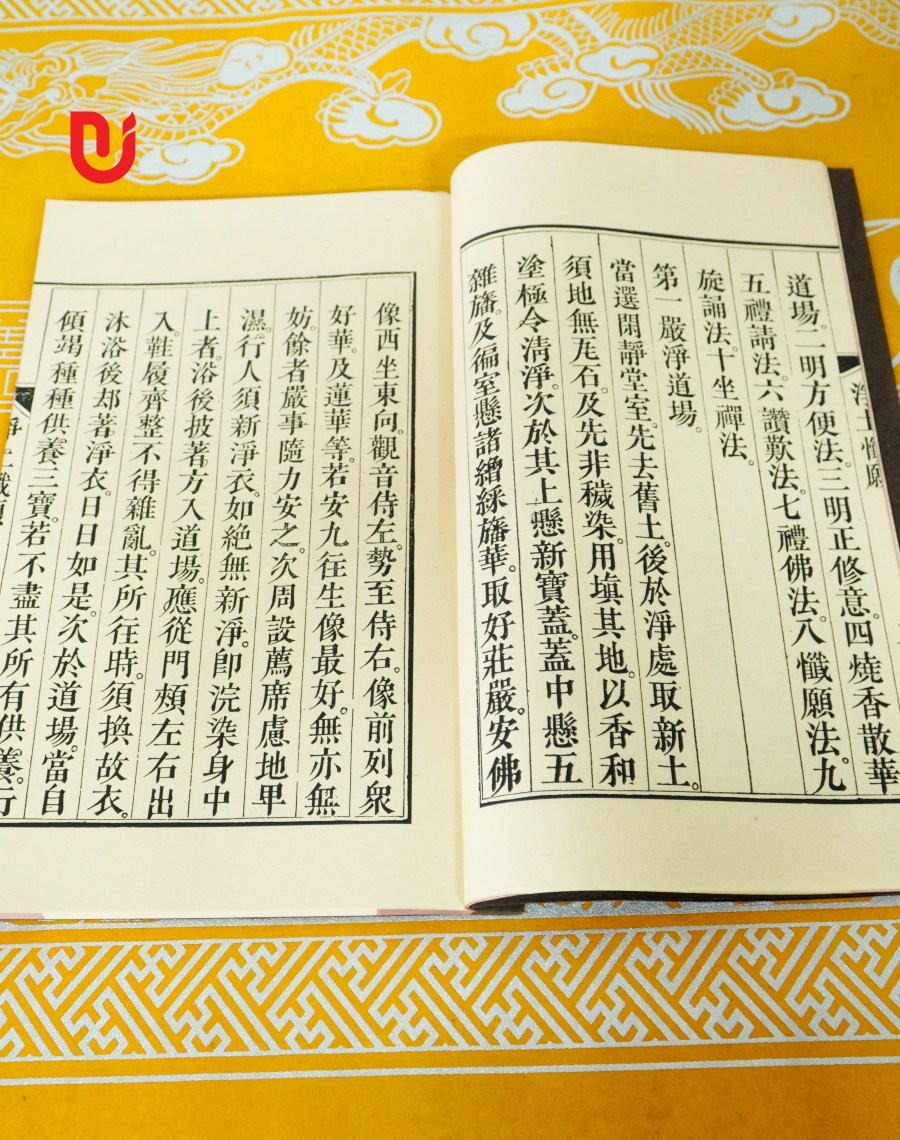 淨土懺願
道場。二明方便法。三明正修意。四燒香散華
五禮請法。六讚歎法。七禮佛法。八懺願法。九
旋誦法。十坐禪法。
第一嚴淨道場。
當選閑靜堂室。先去舊土。後於淨處取新土。
須地無瓦石。及先非穢染。用塡其地。以香和
塗極令淸淨。次於其上懸新寶蓋。蓋中懸五
雜旛。及徧室懸諸繒綵旛華。取好莊嚴。安佛
像西坐東向。觀音侍左。勢至侍右。像前列衆
好華。及蓮華等。若安九往生像最好。無亦無
妨。餘者嚴事隨力安之。次周設薦席慮地卑
濕。行人須新淨衣。如絶無新淨。卽浣染身中
上者。浴後披著。方入道場。應從門頰左右出
入。鞋履齊整不得雜亂。其所往時。須換故衣。
沐浴後却著淨衣。日日如是。次於道場。當自
傾竭種種供養三寶。若不盡其所有供養。行